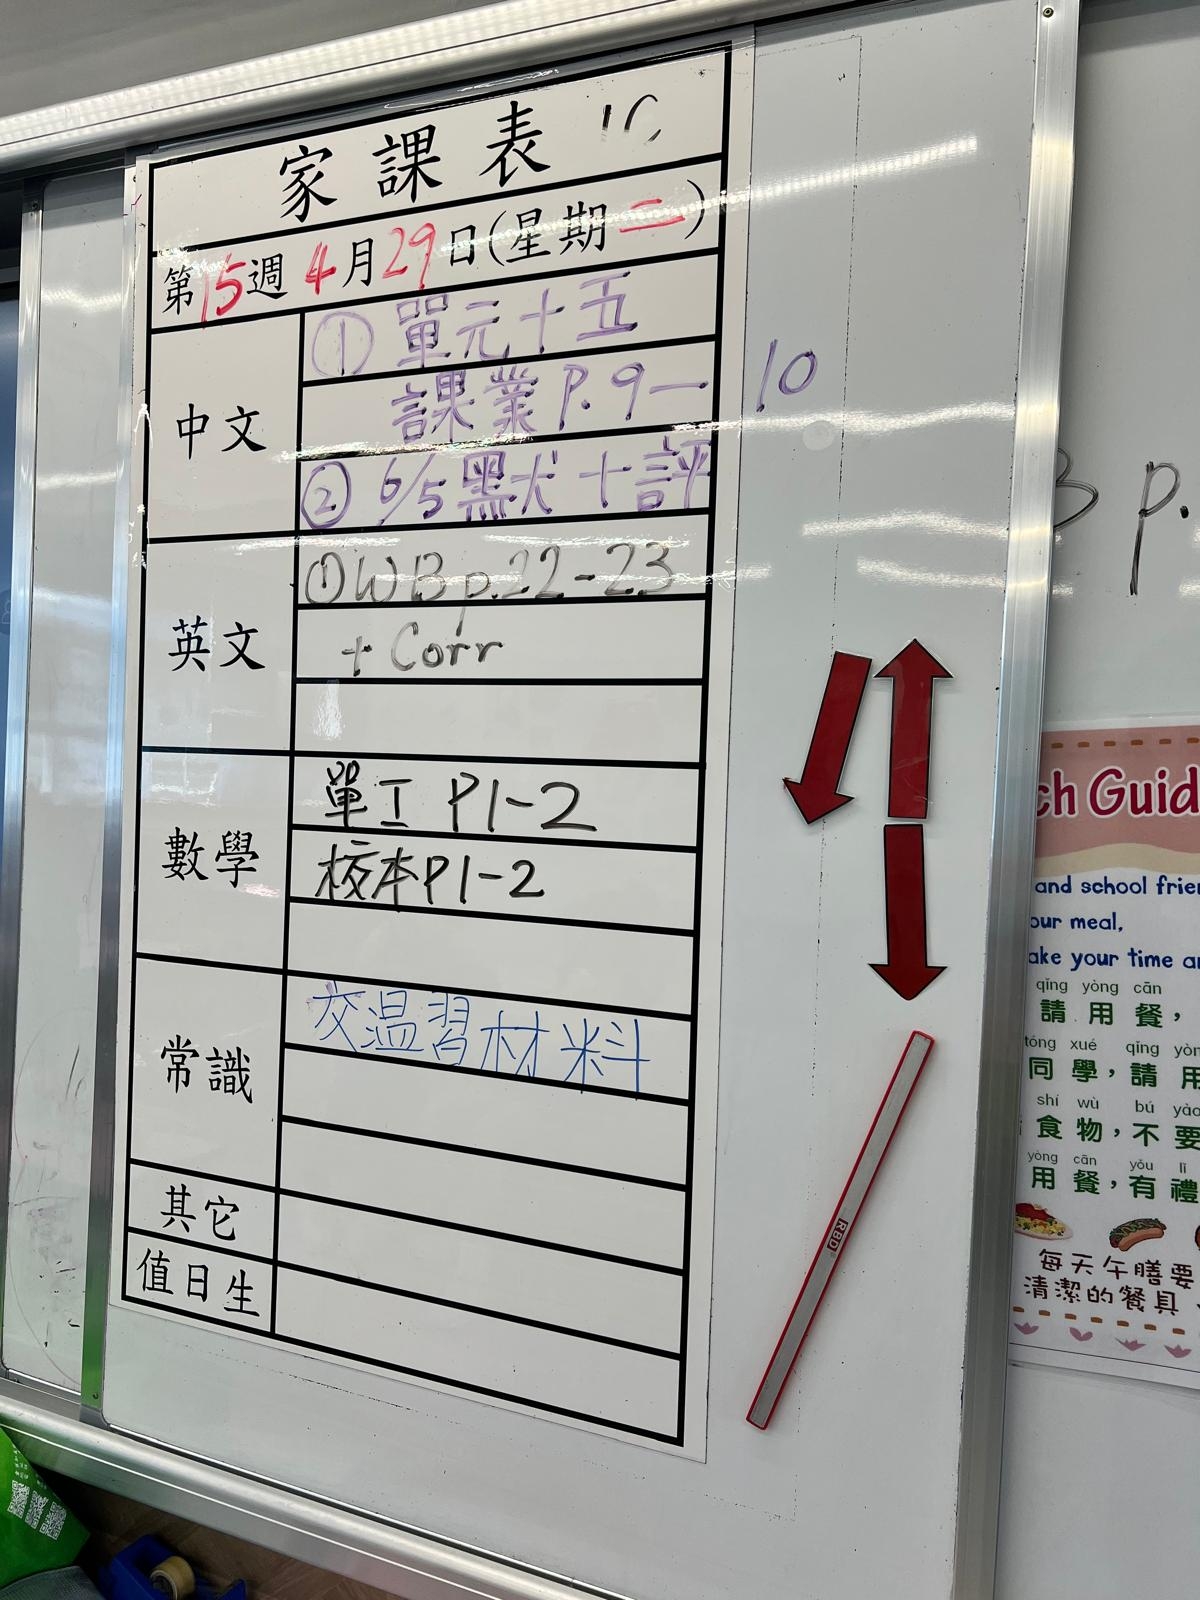 家課表 1C
第15週 4月29日(星期二)
中文
① 單元十五
課業 P.9-10
② 6/5 默犬十評
英文
① WB p.22-23
+ Corr
數學
單工 P1-2
校本P1-2
常識
交温習材料
其它
值日生
B p.
RBD
ch Guid
and school frien
our meal,
ake your time an
qǐng yòng cān
請用餐，
tóng xué qǐng yòn
同學，請用
shí wù bú yào
食物，不要
yòng cān yǒu lǐ
用餐，有禮
每天午膳要
清潔的餐具